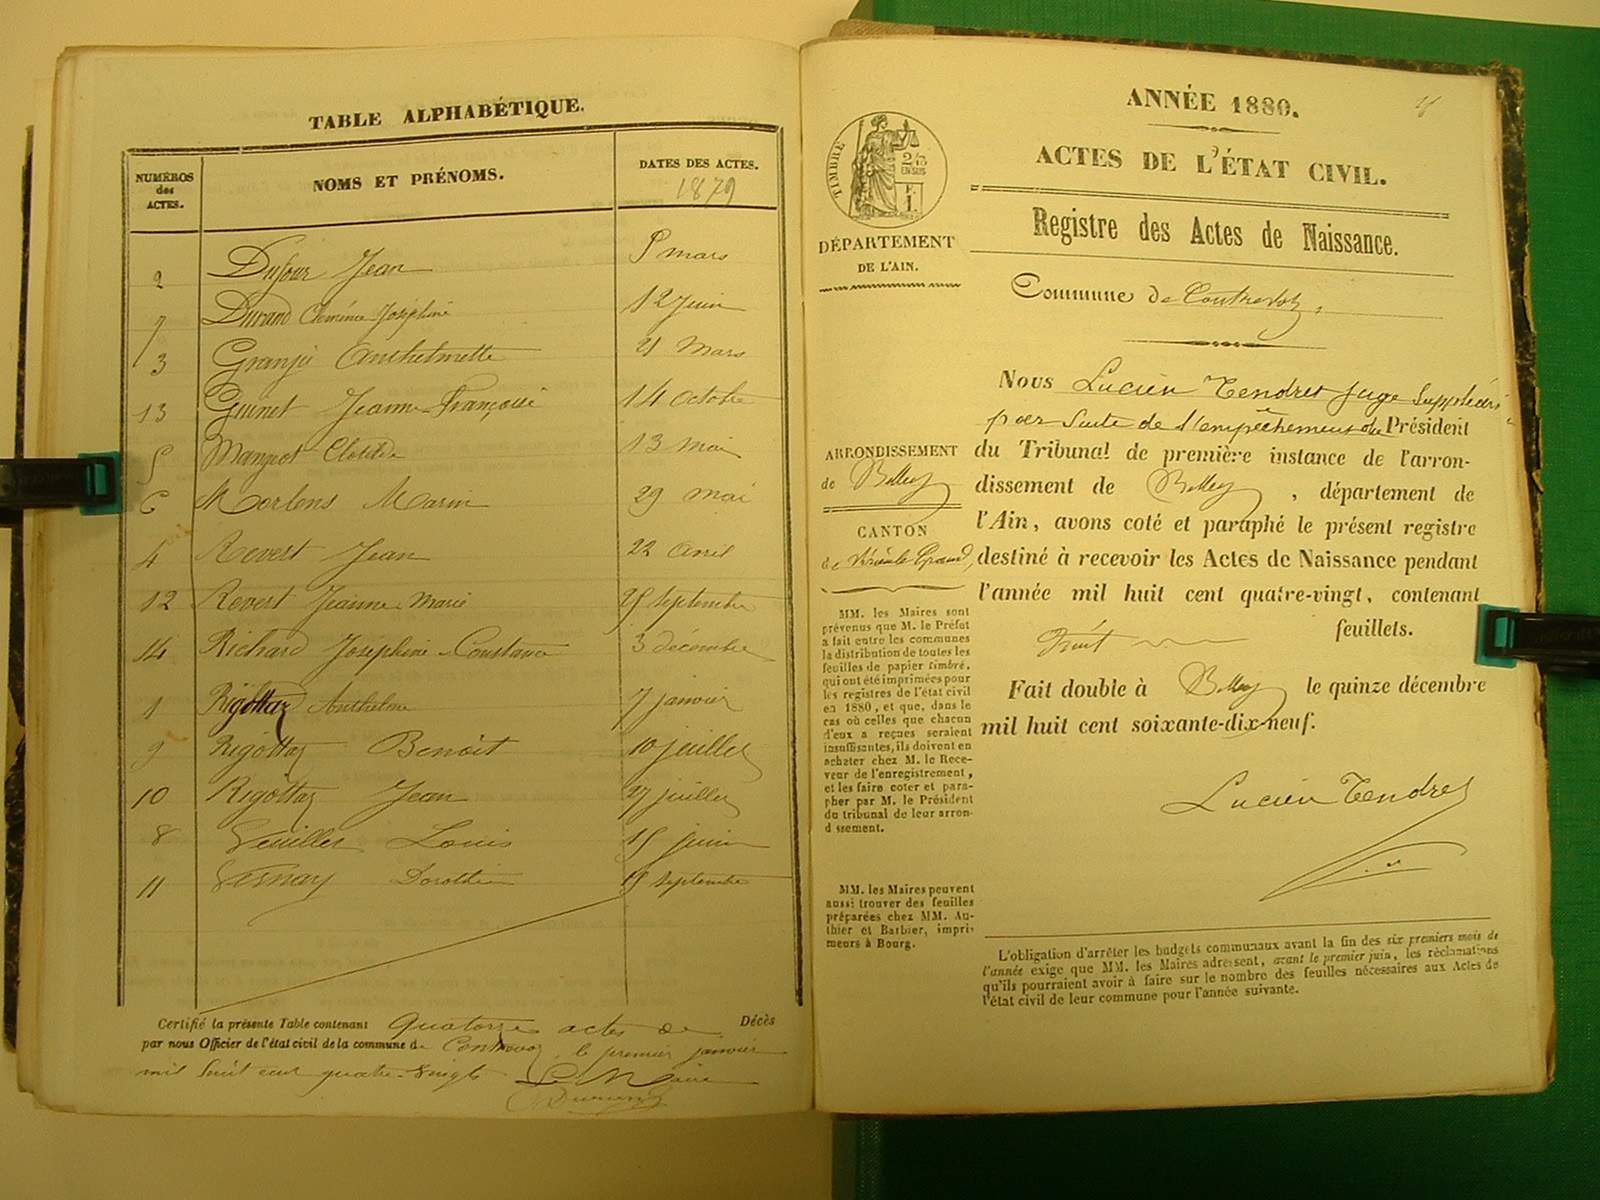 TABLE ALPHABÉTIQUE.
NUMÉROS des ACTES.
NOMS ET PRÉNOMS.
DATES DES ACTES.
1879
2 Dufour Jean 8 mars
7 Durand Clémence Joséphine 12 Juin
3 Granjé Anthelmette 21 Mars
13 Guinet Jeanne-Françoise 14 Octobre
5 Mangeot Clotilde 13 Mai
6 Morlens Marin 29 mai
4 Revert Jean 22 Avril
12 Revert Jeanne-Marie 25 septembre
14 Richard Joséphine-Constance 3 décembre
1 Rigottaz Anthelme 7 janvier
9 Rigottaz Benoit 10 juillet
10 Rigottaz Jean 27 juillet
8 Veuillet Louis 15 juin
11 Vernay Dorothée septembre
Certifié la présente Table contenant Quatorze actes de Décès
par nous Officier de l'état civil de la commune de Contrevoz, le premier janvier
mil huit cent quatre-vingts Le Maire
ANNÉE 1880.
ACTES DE L'ÉTAT CIVIL.
Registre des Actes de Naissance.
TIMBRE
2/10
EN SUS
F.
1.
DÉPARTEMENT
DE L'AIN.
Commune de Contrevoz,
Nous Lucien Tendret Juge Suppléant
par Suite de l'empêchement du Président
du Tribunal de première instance de l'arron-
dissement de Belley, département de
l'Ain, avons coté et paraphé le présent registre
destiné à recevoir les Actes de Naissance pendant
l'année mil huit cent quatre-vingt, contenant
huit feuillets.
Fait double à Belley le quinze décembre
mil huit cent soixante-dix-neuf.
Lucien Tendret
ARRONDISSEMENT
de Belley
CANTON
de Virieu le Grand,
MM. les Maires sont
prévenus que M. le Préfet
a fait entre les communes
la distribution de toutes les
feuilles de papier timbré,
qui ont été imprimées pour
les registres de l'état civil
en 1880, et que, dans le
cas où celles que chacun
d'eux a reçues seraient
insuffisantes, ils doivent en
acheter chez M. le Rece-
veur de l'enregistrement,
et les faire coter et para-
pher par M. le Président
du tribunal de leur arron-
dissement.
MM. les Maires peuvent
aussi trouver des feuilles
préparées chez MM. Au-
thier et Barbier, impri-
meurs à Bourg.
L'obligation d'arrêter les budgets communaux avant la fin des six premiers mois de
l'année exige que MM. les Maires adressent, avant le premier juin, les réclamations
qu'ils pourraient avoir à faire sur le nombre des feuilles nécessaires aux Actes de
l'état civil de leur commune pour l'année suivante.